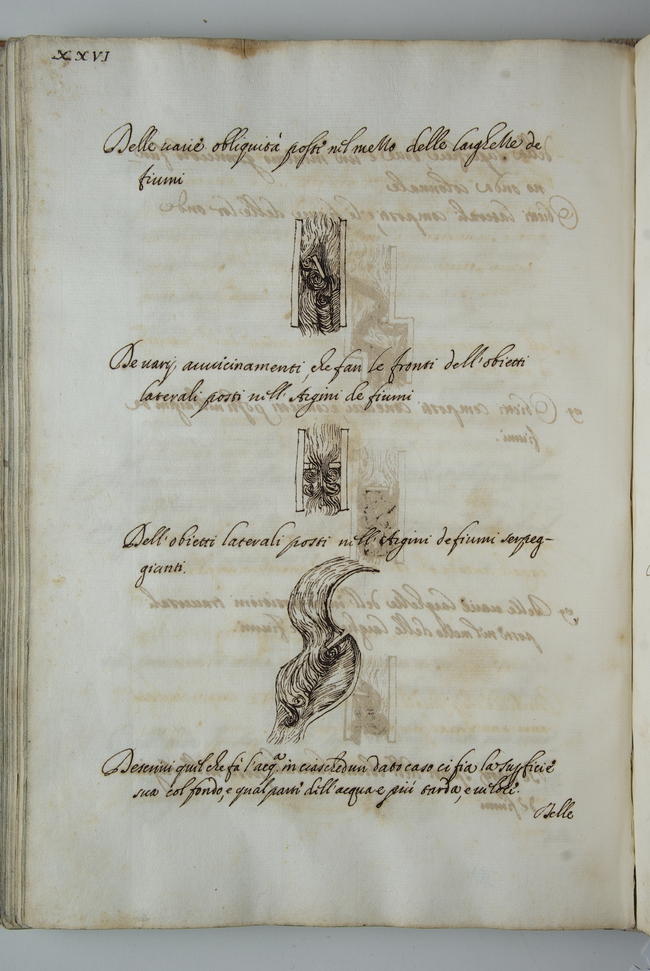 XXVI
Delle varie obliquità posti nel mezzo delle larghezze de
fiumi
De varij avvicinamenti, che fan le fronti dell'obietti
laterali posti nell'Argini de fiumi
Dell'obietti laterali posti nell'Argini de fiumi serpeg-
gianti.
Descrivi quel che fà l'acq.ᵃ in ciaschedun dato caso ci fia la superficie
sua col fondo, e qual parti dell'acqua e più tarda, e veloce.
Delle